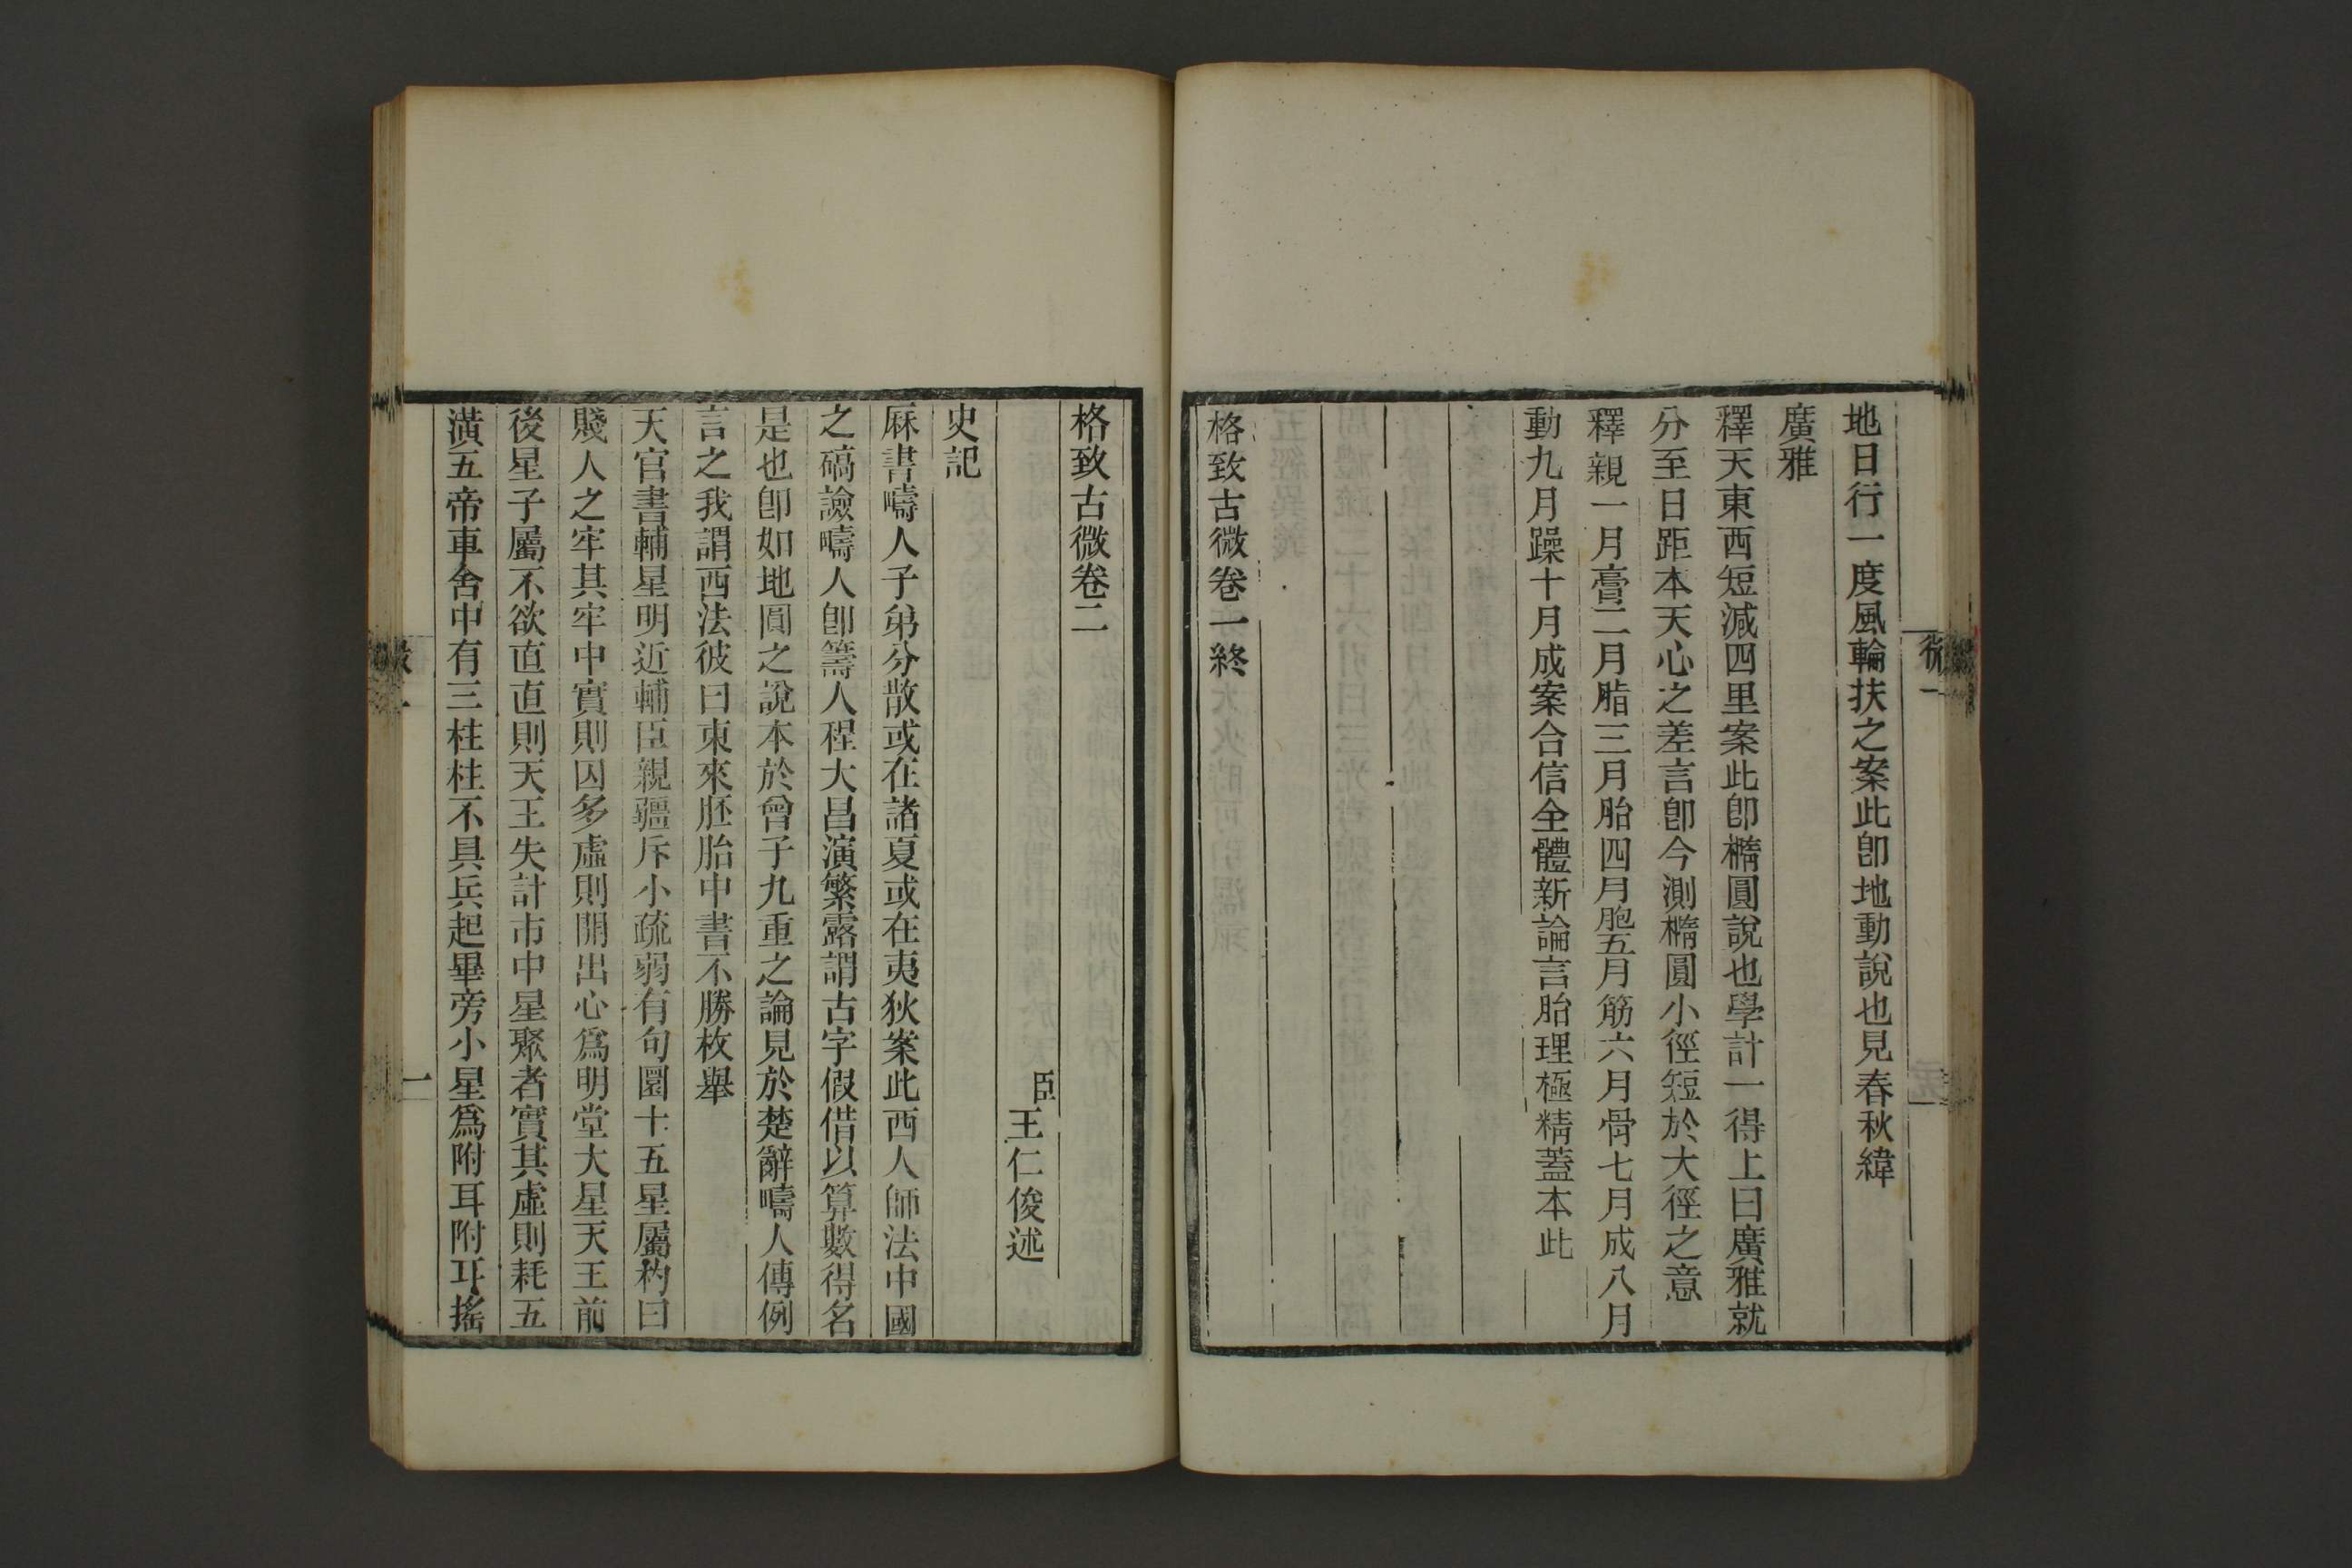 地日行一度風輪扶之案此卽地動說也見春秋緯
廣雅
釋天東西短減四里案此卽橢圓說也學計一得上曰廣雅就
分至日距本天心之差言卽今測橢圓小徑短於大徑之意
釋親一月膏二月脂三月胎四月胞五月筋六月骨七月成八月
動九月躁十月成案合信全體新論言胎理極精蓋本此
格致古微卷一終
格致古微卷二
臣王仁俊述
史記
厤書疇人子弟分散或在諸夏或在夷狄案此西人師法中國
之碻譣疇人卽籌人程大昌演繁露謂古字假借以算數得名
是也卽如地圓之說本於曾子九重之論見於楚辭疇人傳例
言之我謂西法彼曰東來胚胎中書不勝枚舉
天官書輔星明近輔臣親彊斥小疏弱有句圜十五星屬杓曰
賤人之牢其牢中實則囚多虛則開出心爲明堂大星天王前
後星子屬不欲直直則天王失計市中星聚者實其虛則耗五
潢五帝車舍中有三柱柱不具兵起畢旁小星爲附耳附耳搖
一